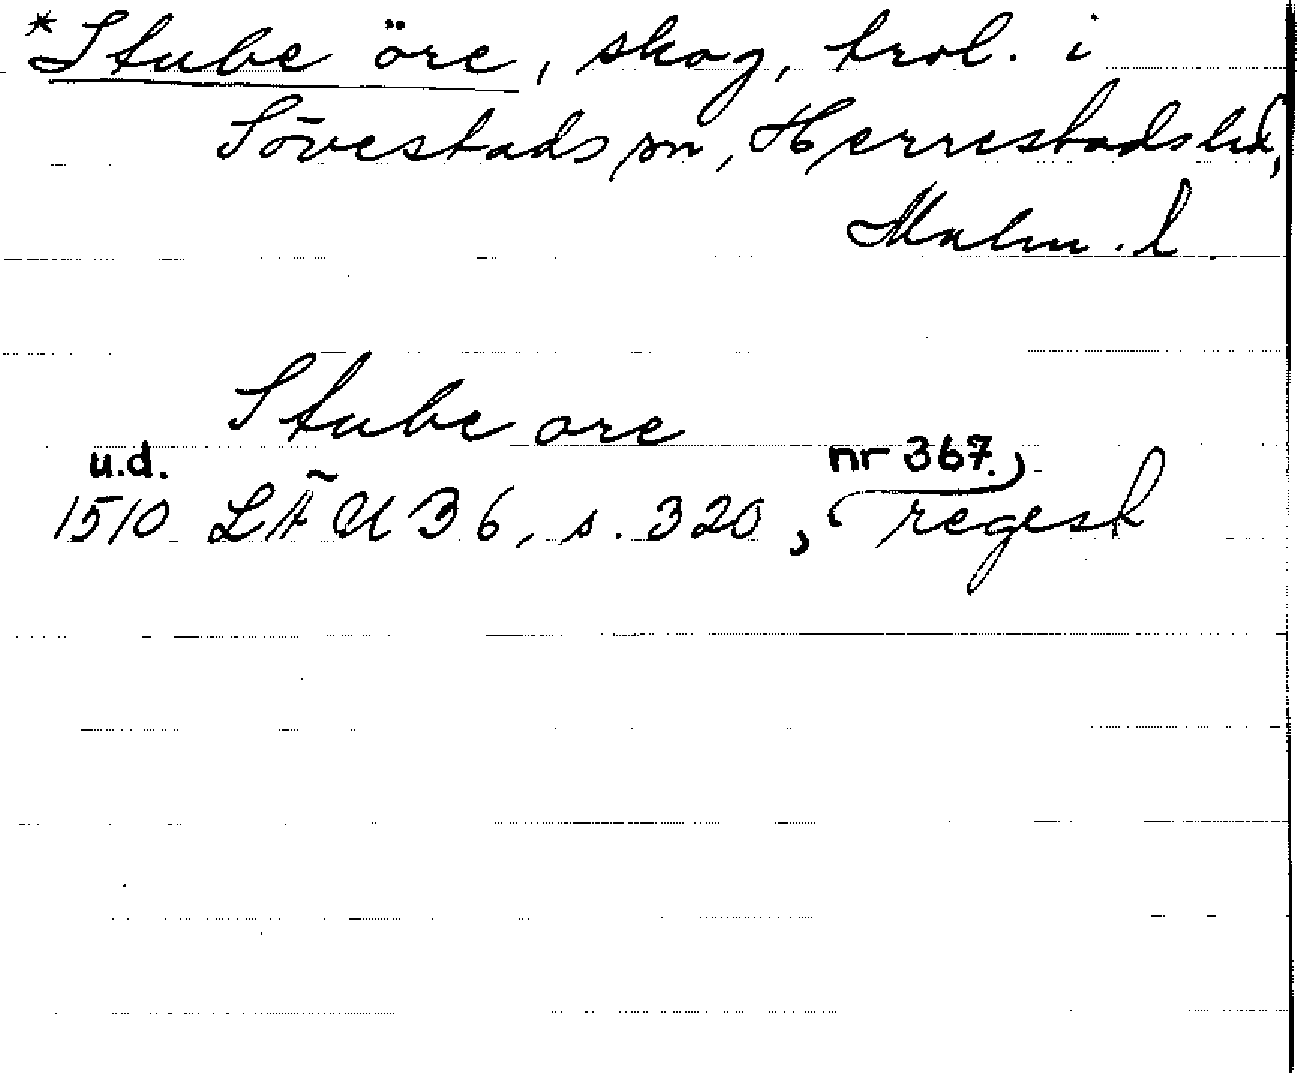 *Stube öre, skog, trol. i
Sövestads sn, Herrestads hd,
Malm. l.
Stube ore
u.d. nr 367.
1510 LÄU 36, s. 320, regest